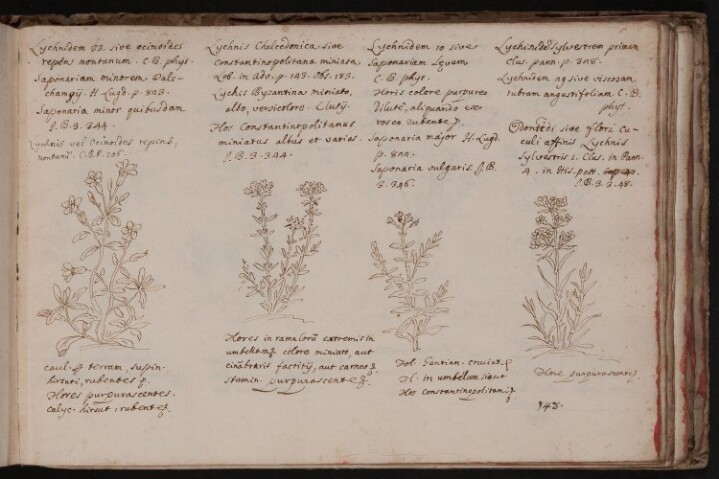 Lychnidem 33. sive ocimoides
repens montanum. C.B. phyt.
Saponariam minorem Dale-
champij. H. Lugd. p. 823.
Saponaria minor quibusdam
J.B. 3. 344.
Lychnis vel Ocimoides repens,
montanu. C.B.P. 206.
caul. terram,
hirsuti, rubentes
Flores purpurascentes.
calyc. hirsut, rubent
Lychnis Chalcedonica sive
Constantinopolitana miniata
Lob. in adv. p. 143. Obs. 183.
Lychis Byzantina miniato,
albo, versicolore. Clusij.
Flos Constantinopolitanus
miniatus albus et varias.
J.B. 3. 344.
Flores in ramulorū extremis in
umbellam colore miniato, aut
cinabaris factitij, aut carneo
stamin. purpurascente
Lychnidem 10 sive
Saponariam Levem
C.B. phyt.
Floris colore purpureo
dilute, aliquando ex
roseo rubente
Saponaria major H. Lugd.
p. 820.
Saponaria vulgaris J.B.
3. 346.
Fol. Gentian. cruciat.
Fl. in umbellam sicut
Flos Constantinopolitan
Lychnidē Sylvestrem primam
Clus. pann. p. 328.
Lychniden sive viscozam
rubram angustifoliam C.B.
phyt.
Odontidi sive flori Cu-
culi affinis Lychnis
Sylvestris 1. Clus. in Pann.
4. in His. post.
J.B. 3. 3.48.
Flore purpurascente
143.